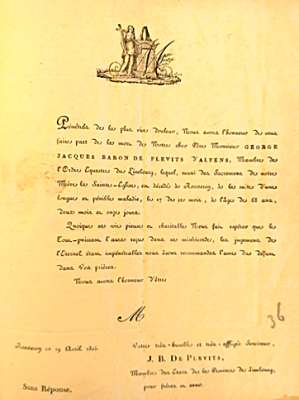 Pénétrée de la plus vive douleur, Nous avons l'honneur de vous
faire part de la mort de Notre cher Père Monsieur GEORGE
JACQUES BARON DE PLEVITS D'ALFENS, Membre de
l'Ordre Equestre du Limbourg, lequel, muni des Sacremens de notre
Mère la Sainte-Eglise, est décédé à de suites d'une
longue et pénible maladie, le 17 de ce mois, de l'âge de 68 ans,
deux mois et onze jours.
Quoique sa vie pieuse et charitable Nous fait espérer que le
Tout-puissant l'aura reçu dans sa miséricorde, les jugemens de
l'Eternel étant impénétrables nous devons recommander l'ame du Défunt
dans Vos prières.
Nous avons l'honneur d'être
M
36
le 19 Avril
Votres très-humbles et très-affligés Serviteurs,
J. B. DE PLEVITS,
Membre des Etats de la Province de Limbourg,
pour frères et sœur.
Sans Réponse.